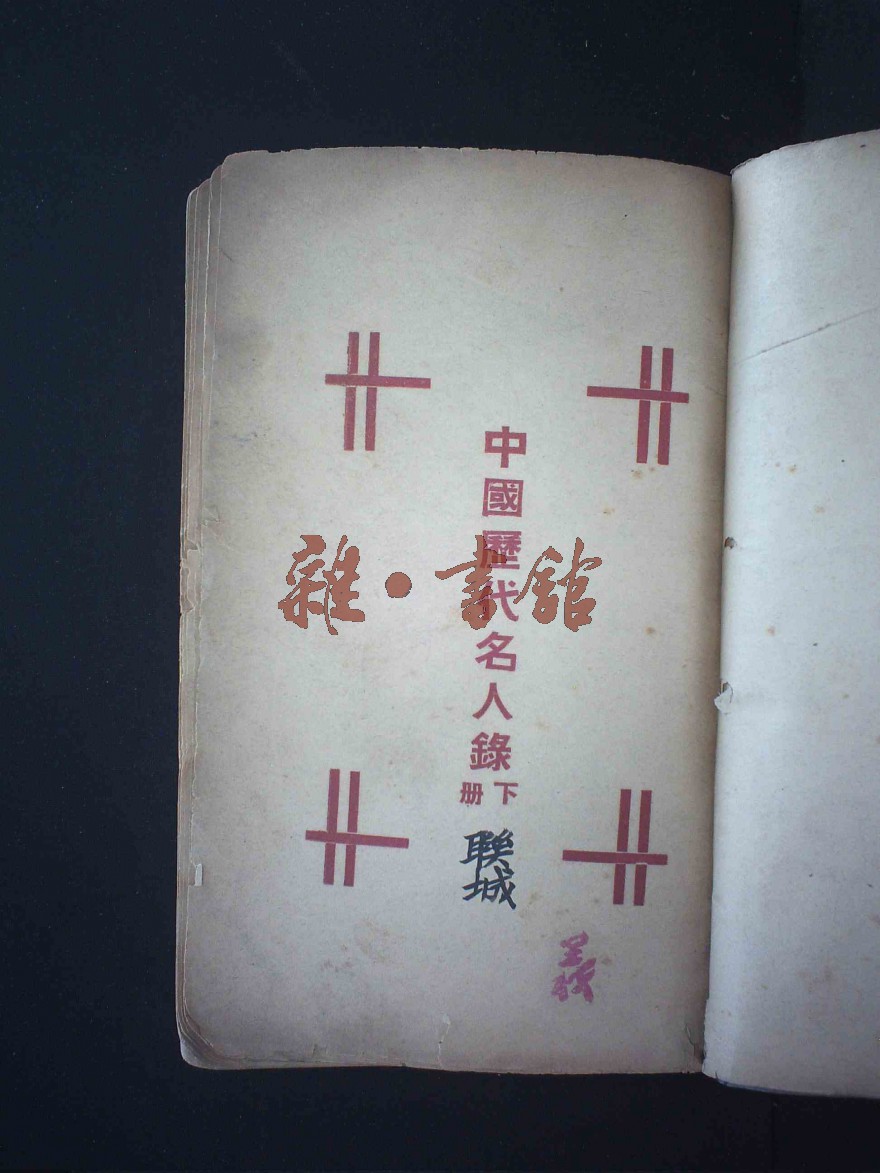 中國歷代名人錄
下册
聯城
雜·書館